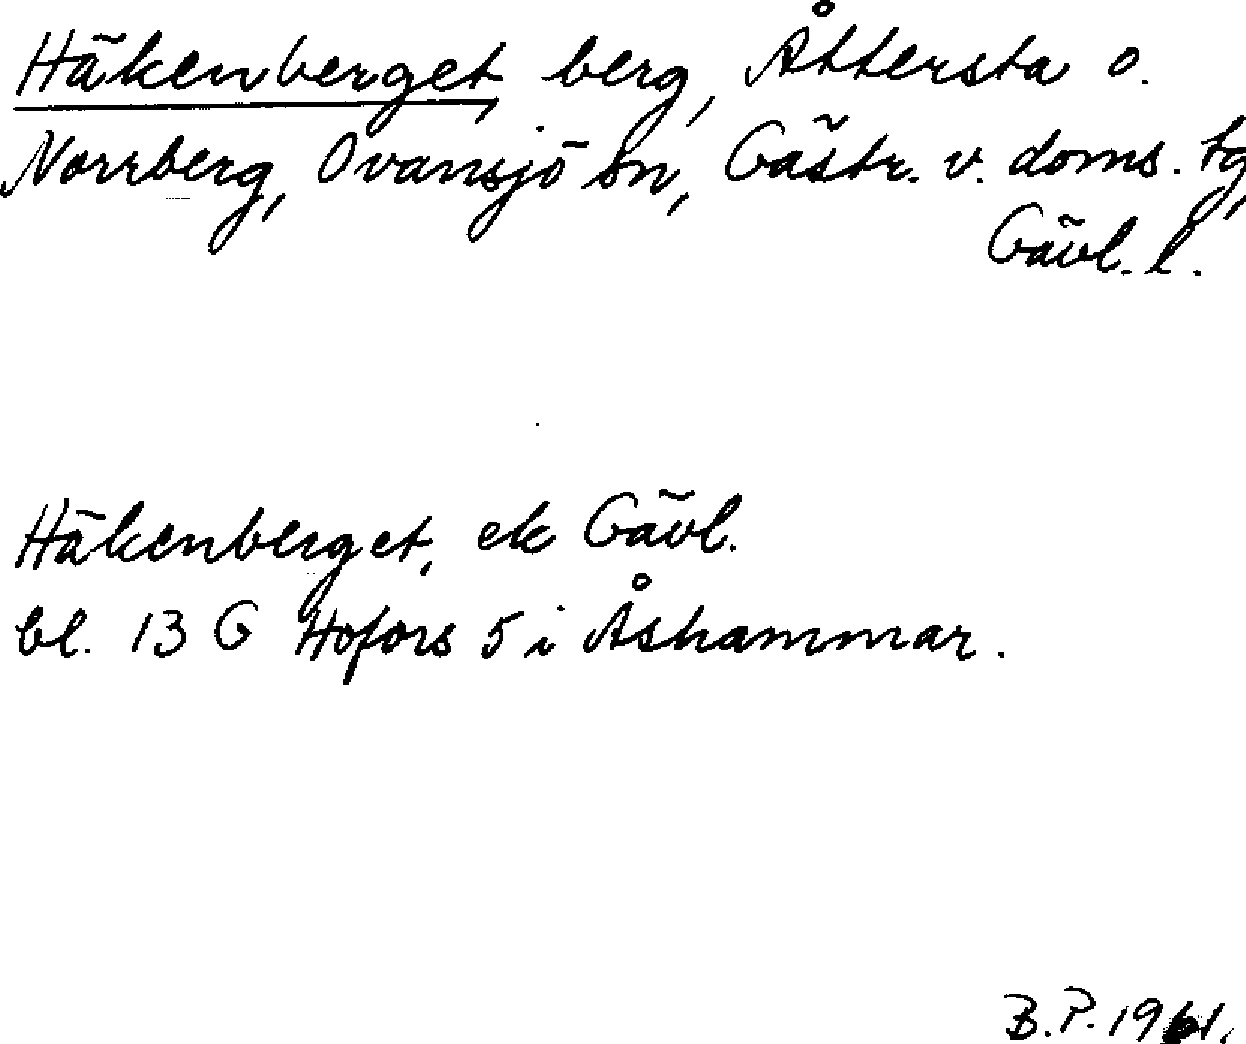 Häkenberget, berg, Åttersta o.
Norrberg, Ovansjö sn, Gästr. v. doms. tg,
Gävl. l.
Häkenberget, ek Gävl.
bl. 13 G Hofors 5 i Åshammar.
B.P. 1961.